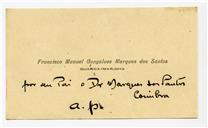 Francisco Manuel Gonçalves Marques dos Santos
por seu Pai o Dr Marques dos Santos
Coimbra
a. p.